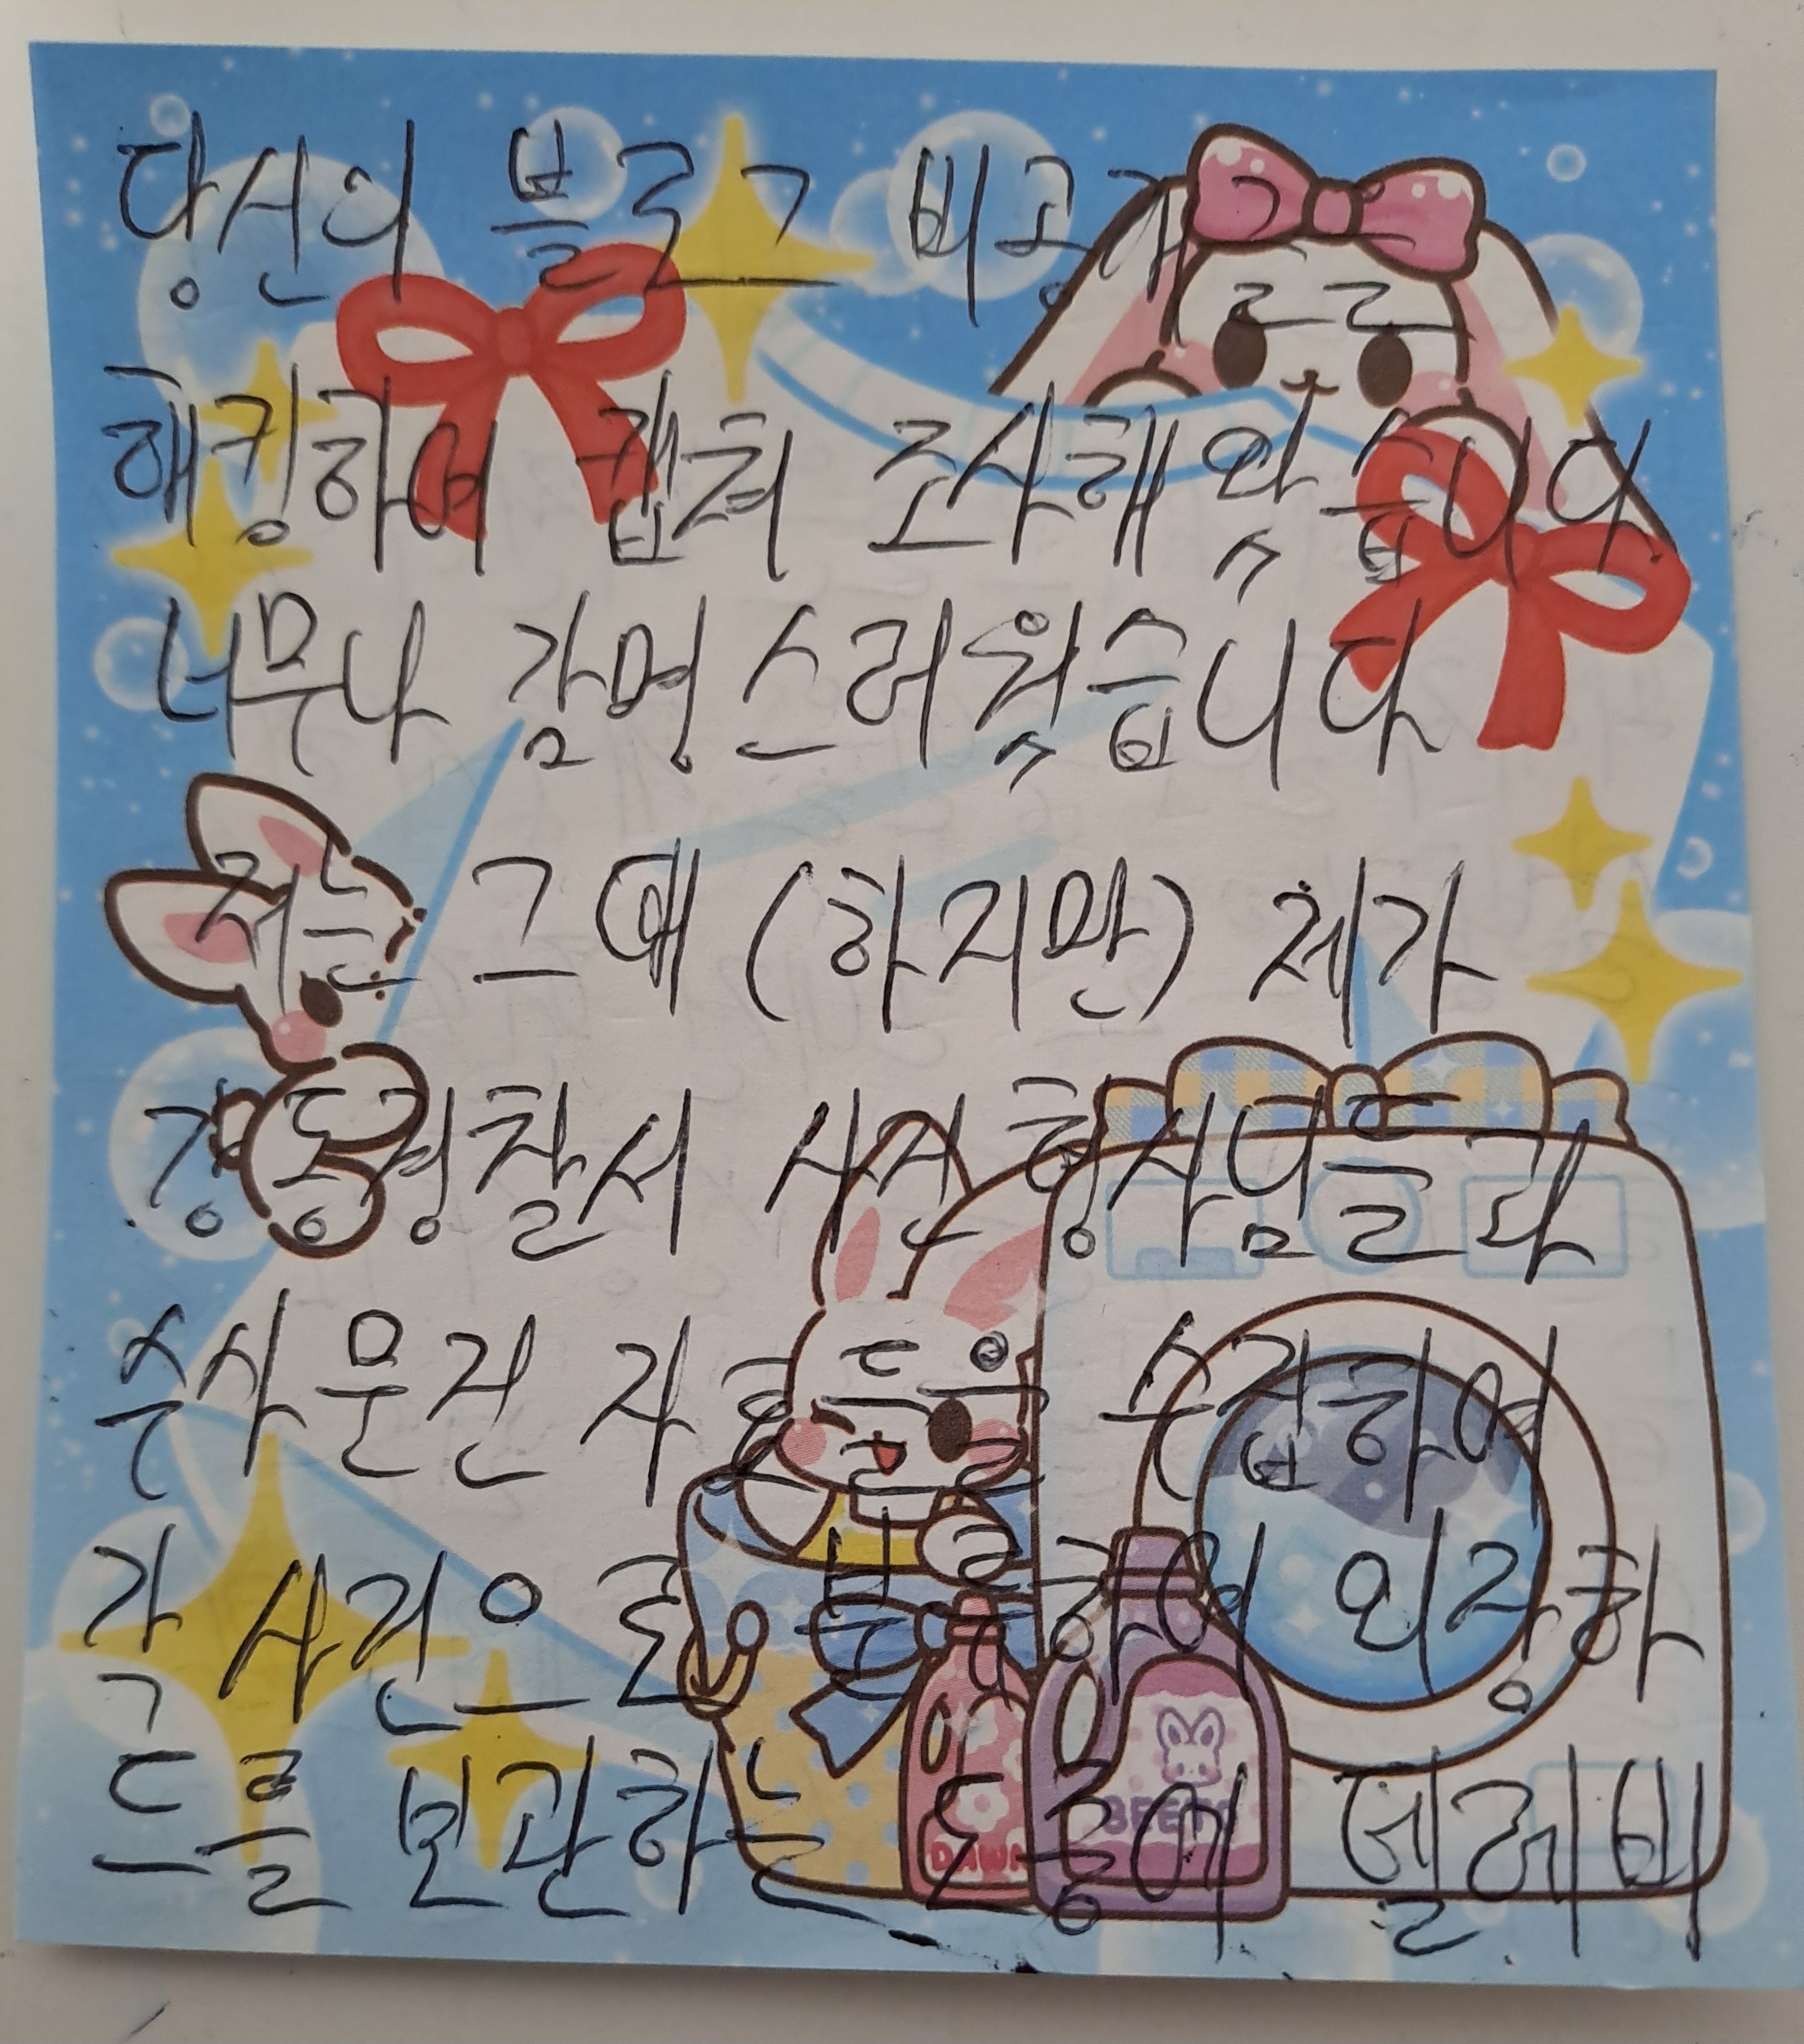 당신의 블로그 비공개 글를
해킹하여 캡쳐 조사해 왔습니다
너무나 감명스러웠습니다
저는 그때 (하지만) 제가
강동경찰서 사건 형사님들과
수사 문건 자료들을 수집하여
각 사건으로 분류하여 외장하
드를 보관하는 도중에 텔레비
DAWN